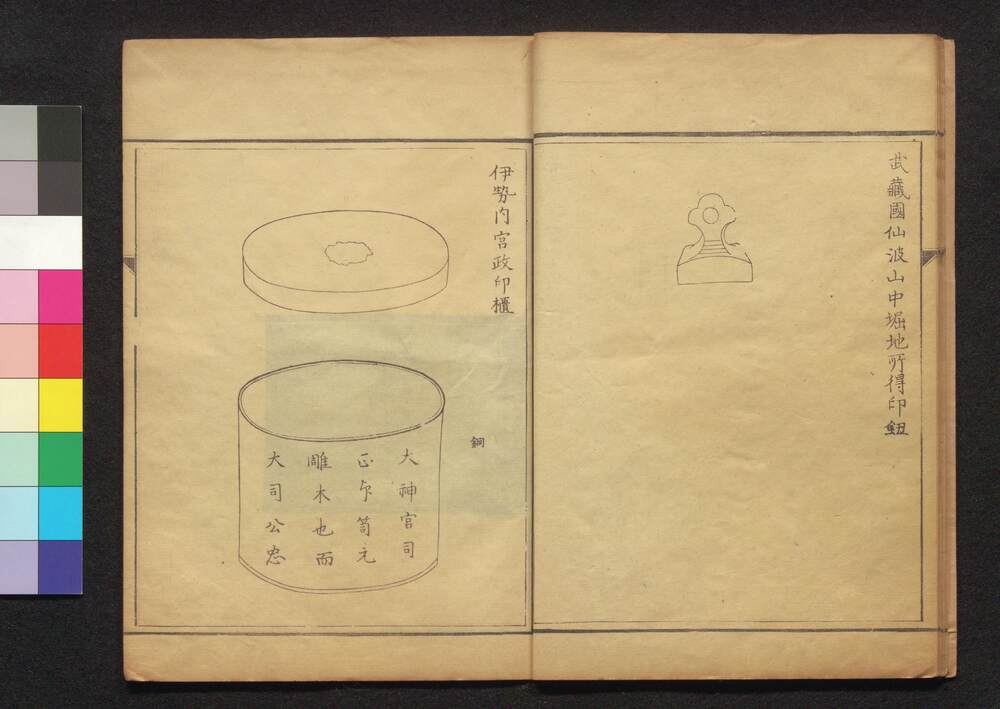 武藏國仙波山中堀地所得印鈕
伊勢内宮政印櫃
銅
大神宮司
正印筒元
雕木也而
大司公忠